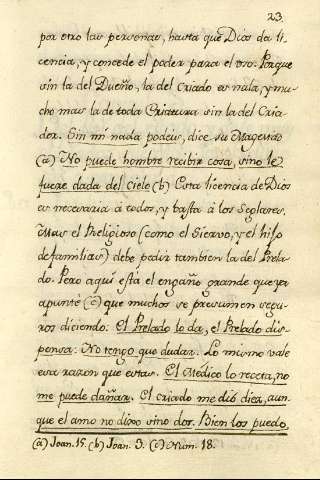 23.
por otro las personas, hasta que Dios da li-
cencia, y concede el poder para el uso. Porque
sin la del Dueño, la del Criado es nula, y mu-
cho mas la de toda Criatura sin la del Cria-
dor. Sin mi nada podeis, dice su Magestad
(a) No puede hombre recibir cosa, sino le
fuere dada del cielo (b) Esta licencia de Dios
es necesaria á todos, y basta á los Seglares.
Mas el Religioso (como el Siervo, y el hijo
defamilias) debe pedir tambien la del Prela-
do. Pero aquí está el engaño grande que ya
apunté (c) que muchos se presumen segu-
ros diciendo: El Prelado lo da, el Prelado dis-
pensa: No tengo que dudar. Lo mismo vale
esa razon que estas. El Medico lo receta, no
me puede dañar. El criado me dió diez, aun-
que el amo no dixo sino dos. Bien los puedo
(a) Joan. 15. (b) Joan. 3. (c) Num. 18.